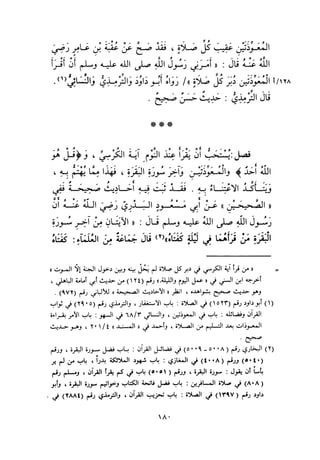 المُعَوِّذَتَيْنِ عَقِيبَ كُلِّ صَلَاةٍ ، فَقَدْ صَحَّ عَنْ عُقْبَةَ بْنِ عَامِرٍ رَضِيَ
اللَّهُ عَنْهُ قَالَ : « أَمَرَنِي رَسُولُ اللَّهِ صلى الله عليه وسلم أَنْ أَقْرَأَ
المُعَوِّذَتَيْنِ دُبُرَ كُلِّ صَلَاةٍ »/ رَوَاهُ أَبُو دَاوُدَ وَالتِّرْمِذِيُّ وَالنَّسَائِيُّ(١) .
١٢٨/أ
قَالَ التِّرْمِذِيُّ : حَدِيثٌ حَسَنٌ صَحِيحٌ .
***
فصل: يُسْتَحَبُّ أَنْ يَقْرَأَ عِنْدَ النَّوْمِ آيَةَ الْكُرْسِيِّ ، وَ ﴿ قُلْ هُوَ
اللَّهُ أَحَدٌ ﴾ وَالْمُعَوِّذَتَيْنِ ، وَآخِرَ سُورَةِ الْبَقَرَةِ ، فَهَذَا مِمَّا يُهْتَمُّ بِهِ ،
وَيَتَأَكَّدُ الاعْتِنَاءُ بِهِ . فَقَدْ ثَبَتَ فِيهِ أَحَادِيثُ صَحِيحَةٌ فَفِي
« الصَّحِيحَيْنِ » عَنْ أَبِي مَسْعُودٍ الْبَدْرِيِّ رَضِيَ اللَّهُ عَنْهُ أَنَّ
رَسُولَ اللَّهِ صلى الله عليه وسلم قَالَ : « الآيَتَانِ مِنْ آخِرِ سُورَةِ
الْبَقَرَةِ مَنْ قَرَأَهُمَا فِي لَيْلَةٍ كَفَتَاهُ»(٢) قَالَ جَمَاعَةٌ مِنَ الْعُلَمَاءِ: كَفَتَاهُ
= « من قرأ آية الكرسي في دبر كل صلاة لم يَحُلْ بينه وبين دخول الجنة إلاَّ الموت »
أخرجه ابن السني في « عمل اليوم والليلة» رقم (١٢٤) من حديث أبي أمامة الباهلي ،
وهو حديث صحيح بشواهده ، انظر « الأحاديث الصحيحة » للألباني رقم (٩٧٢) .
(١) أبو داود رقم (١٥٢٣) في الصلاة : باب الاستغفار ، والترمذي رقم (٢٩٠٥) في ثواب
القرآن وفضائله : باب في المعوذتين ، والنسائي ٦٨/٣ في السهو : باب الأمر بقراءة
المعوذات بعد التسليم من الصلاة ، وأحمد في « المسند » ٢٠١/٤ ، وهو حديث
صحيح .
(٢) البخاري رقم (٥٠٠٨ ـ ٥٠٠٩) في فضائل القرآن : باب فضل سورة البقرة ، ورقم
(٥٠٤٠) ورقم (٤٠٠٨) في المغازي : باب شهود الملائكة بدراً ، باب من لم ير
بأساً أن يقول : سورة البقرة ، ورقم (٥٠٥١) في باب كم يقرأ في القرآن ، ومسلم رقم
(٨٠٨) في صلاة المسافرين : باب فضل فاتحة الكتاب وخواتيم سورة البقرة ، وأبو
داود رقم (١٣٩٧) في الصلاة : باب تحزيب القرآن ، والترمذي رقم (٢٨٨٤) في
١٨٠